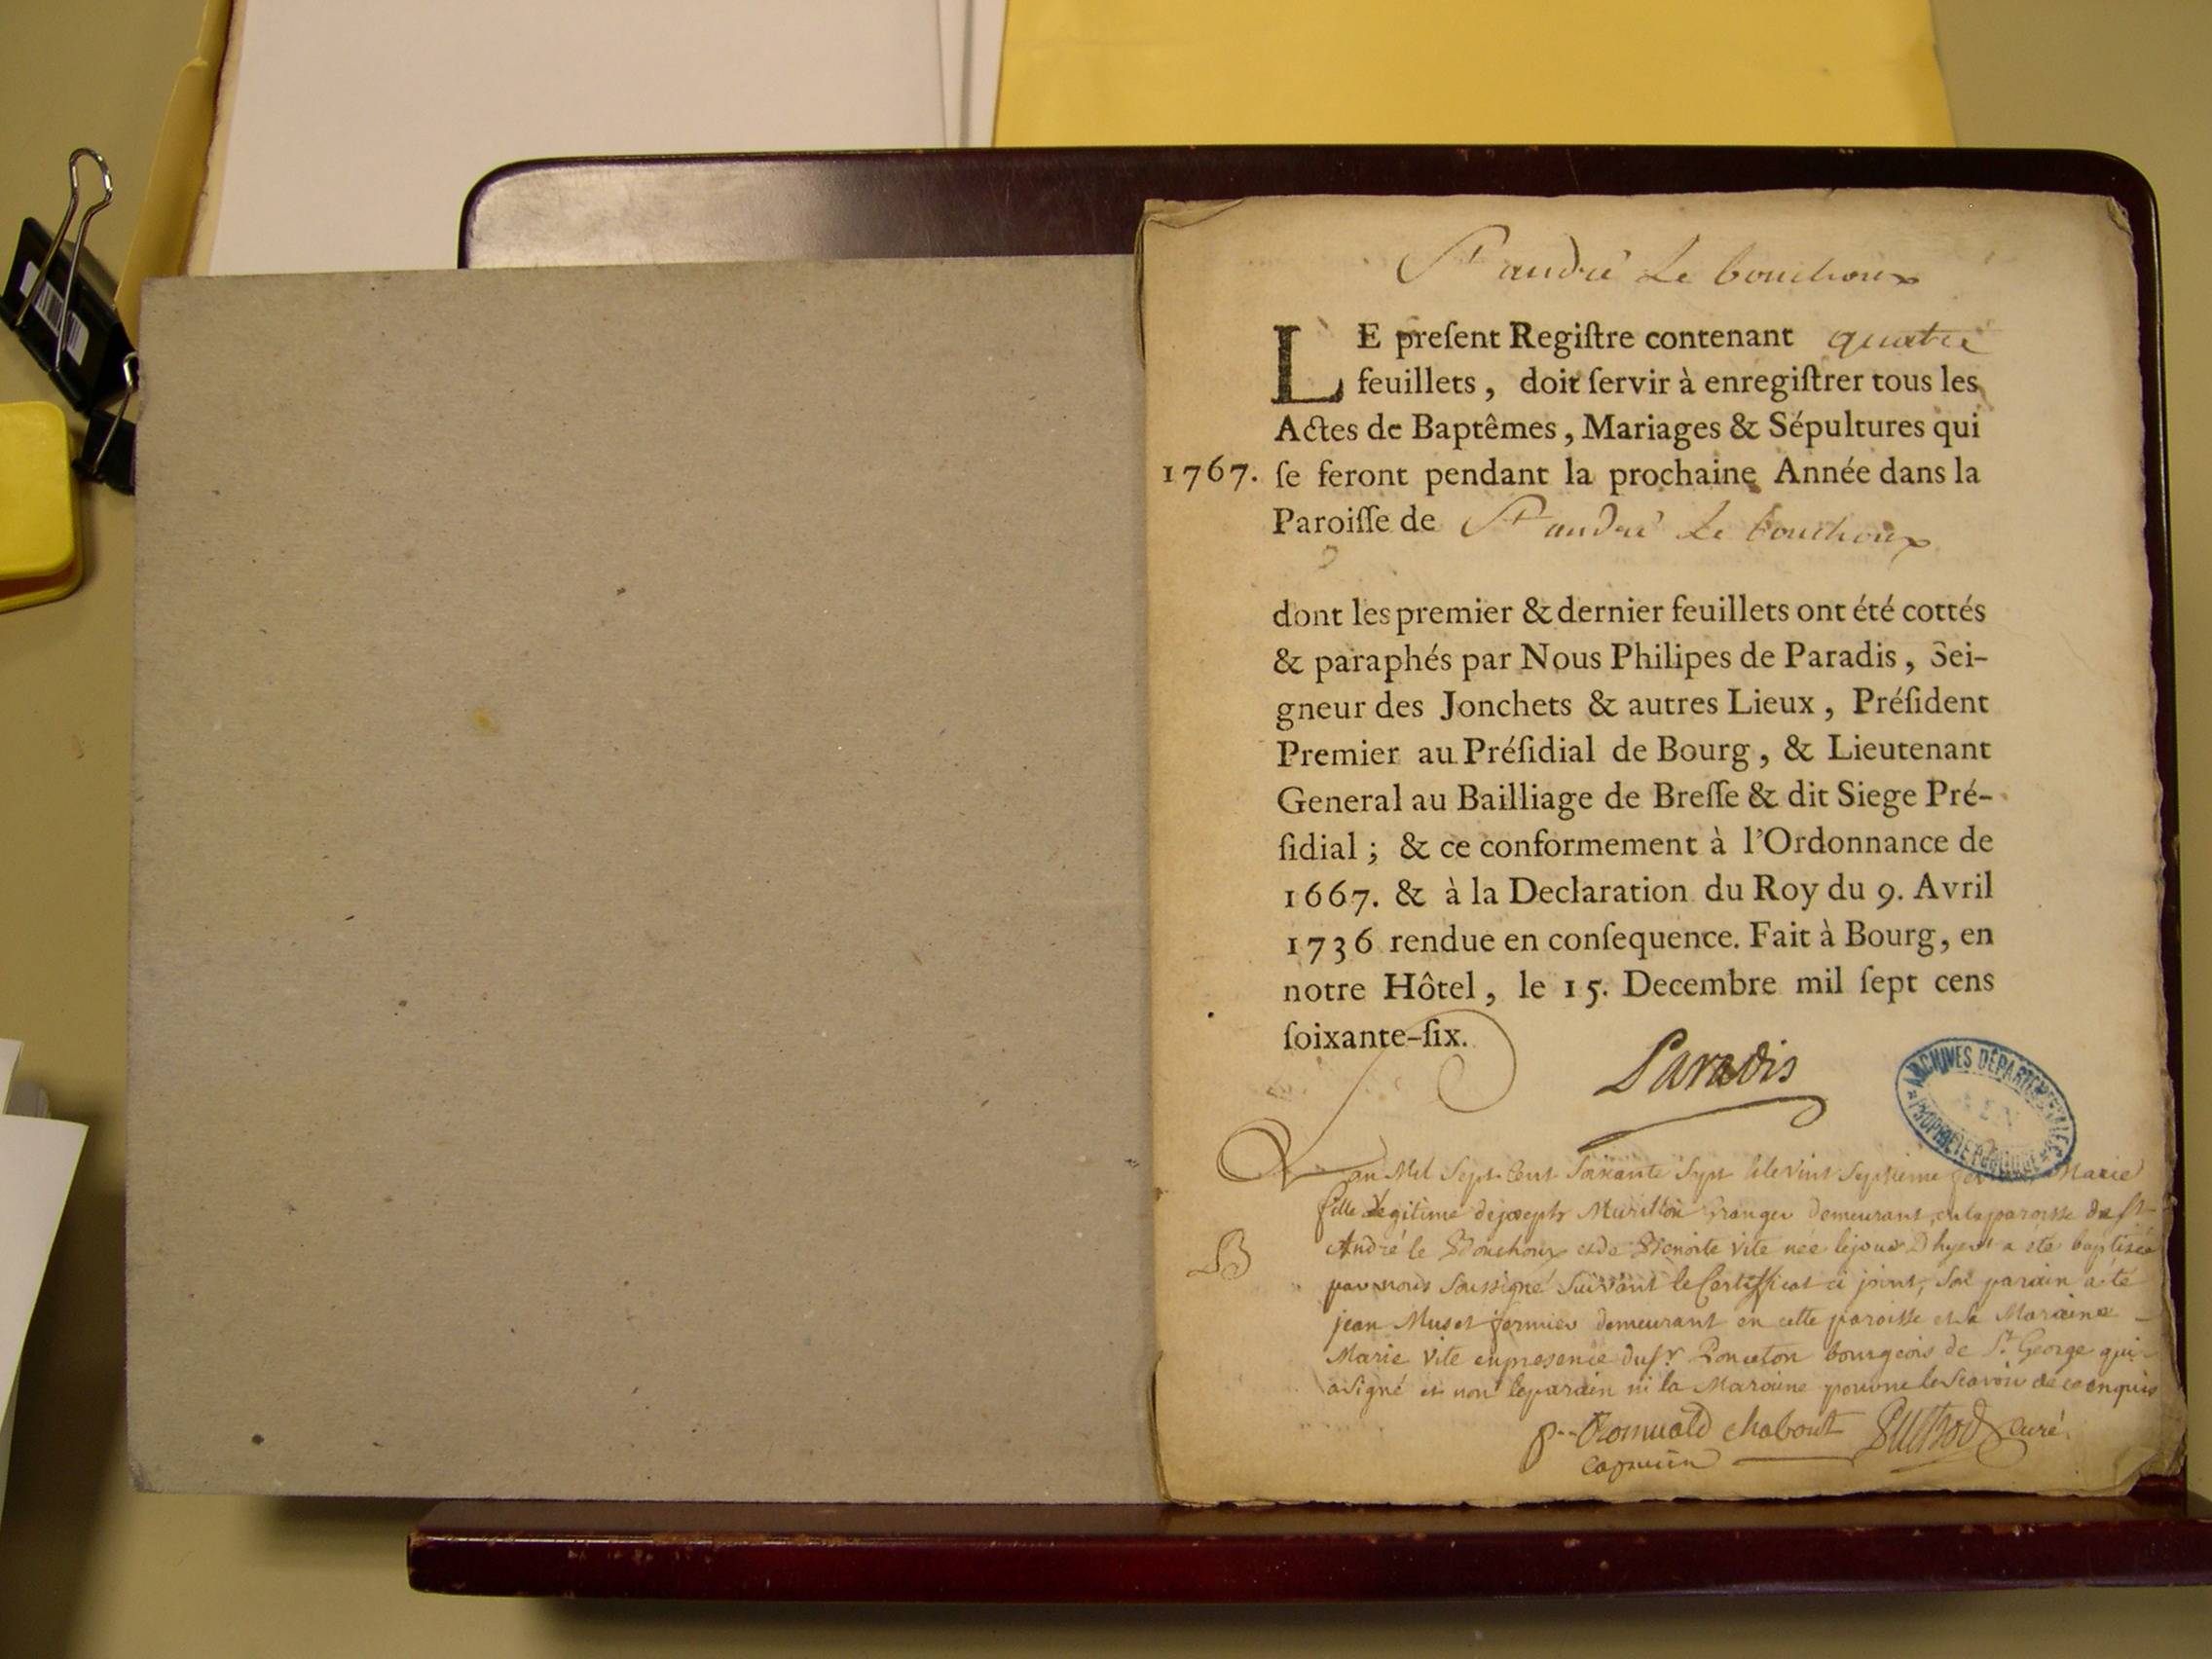 St andré Le bouchoux
LE preſent Regiſtre contenant quatre
feuillets, doit ſervir à enregiſtrer tous les
Actes de Baptêmes, Mariages & Sépultures qui
1767. ſe feront pendant la prochaine Année dans la
Paroiſſe de St andré Le bouchoux
dont les premier & dernier feuillets ont été cottés
& paraphés par Nous Philipes de Paradis, Sei-
gneur des Jonchets & autres Lieux, Préſident
Premier au Préſidial de Bourg, & Lieutenant
General au Bailliage de Breſſe & dit Siege Pré-
ſidial; & ce conformement à l'Ordonnance de
1667. & à la Declaration du Roy du 9. Avril
1736 rendue en conſequence. Fait à Bourg, en
notre Hôtel, le 15. Decembre mil ſept cens
ſoixante-ſix.
Paradis
ARCHIVES DÉPARTEMENTALES
AIN
PROPRIÉTÉ PUBLIQUE
L'an Mil Sept Cent Soixante Sept le vint Septieme Marie
fille Legitime de joseph Granger demeurant en la paroisse de St
B
André le Bouchoux et de Benoite Vite née le jour D'hyer a été baptisée
par nous Soussigné Suivant le Certifficat ci joint, Son parain a été
jean Muset fermier demeurant en cette paroisse et Sa Maraine
Marie Vite en presence du Sr Ponceton bourgeois de St George qui
a Signé et non le parain ni la Maraine pour ne le Scavoir de ce enquis
p. Romuald chabout Puthod Curé
Capucin